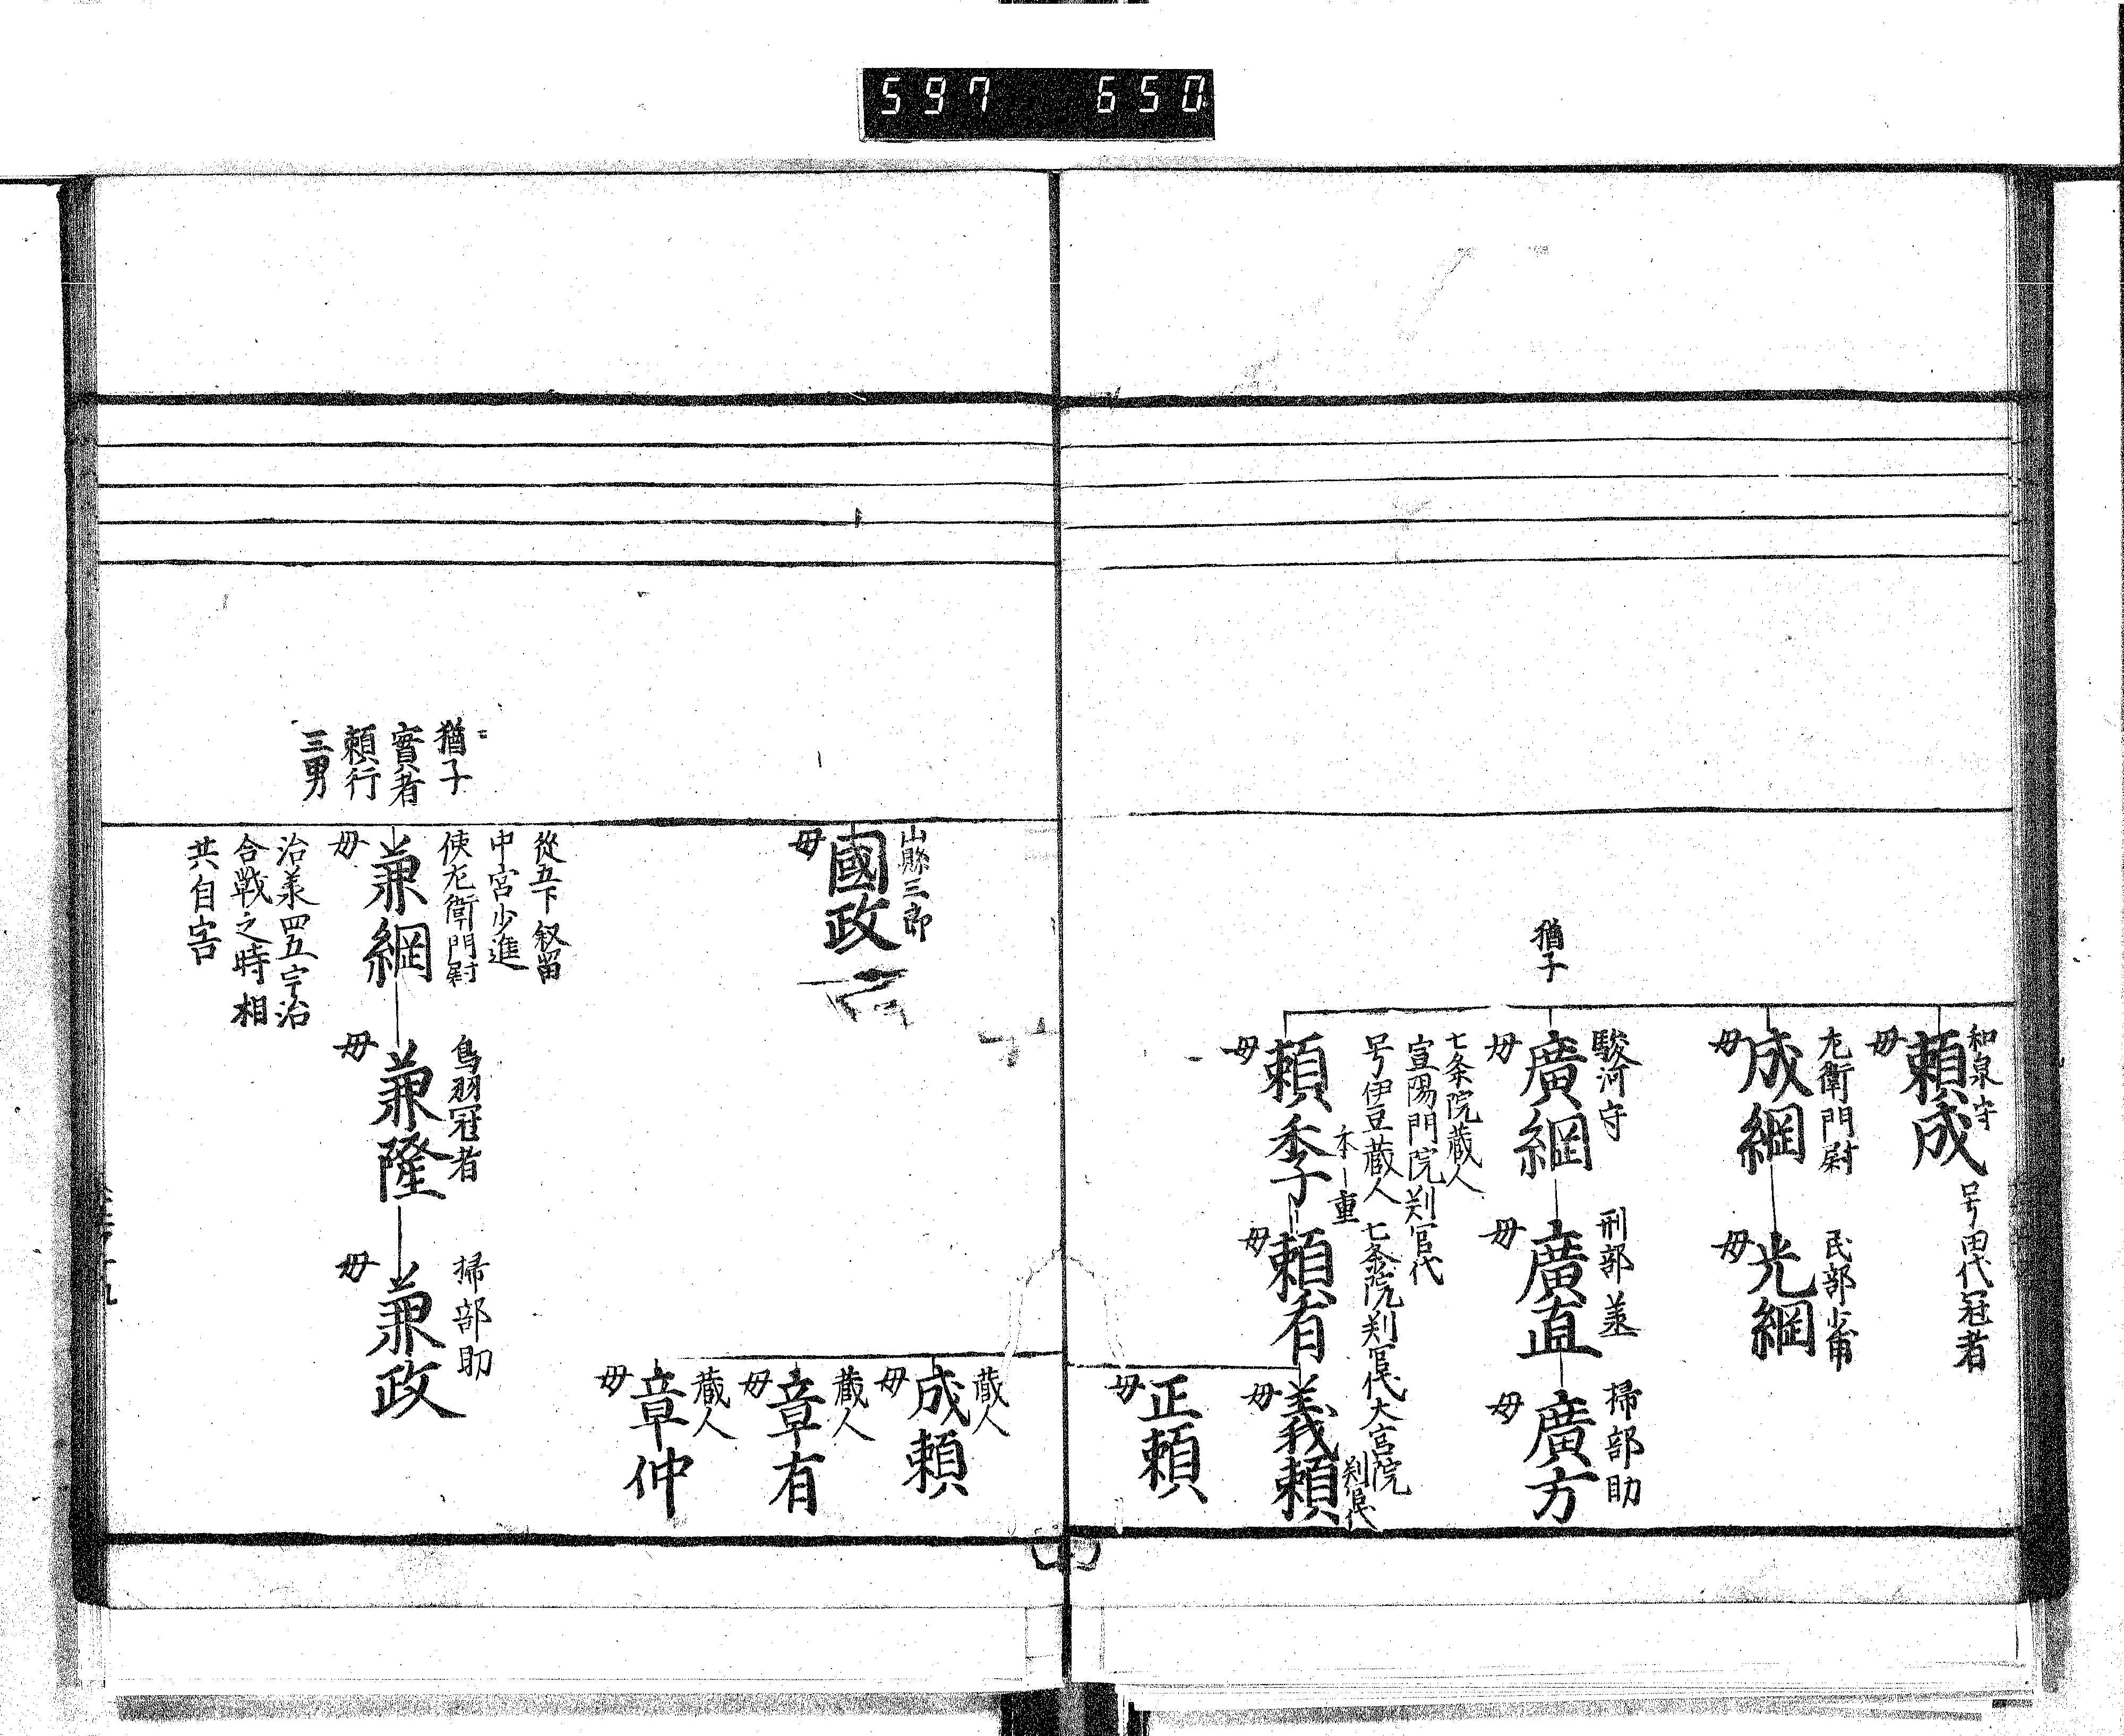 597 650
和泉守
頼成
号田代冠者
母
左衛門尉
成綱
母
民部少甫
光綱
母
猶子
駿河守
廣綱
母
刑部丞
廣直
母
掃部助
廣方
母
七条院蔵人
宣陽門院判官代
号伊豆蔵人
本重
頼季
母
七条院判官代大宮院
判官代
頼有
母
義頼
母
正頼
母
蔵人
成頼
母
蔵人
章有
母
蔵人
章仲
母
山縣三郎
國政
母
猶子
實者
頼行
三男
從五下叙留
中宮少進
使左衛門尉
兼綱
母
治羕四五宇治
合戰之時相
共自害
鳥羽冠者
兼隆
母
掃部助
兼政
母